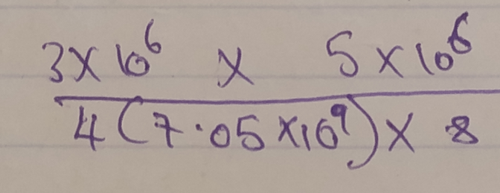 3×10⁶ × 5×10⁶
4(7.05×10⁹)× 8